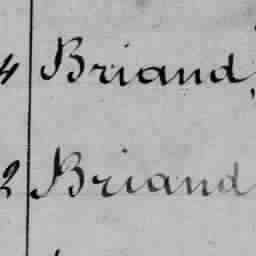 4 Briand,
2 Briand